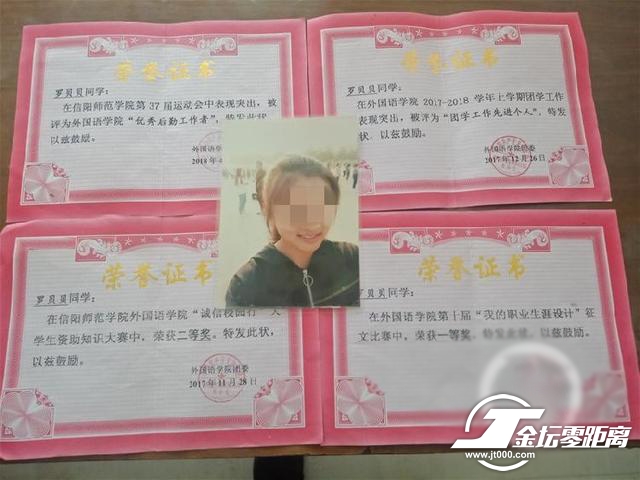 荣誉证书
罗贝贝同学：
在信阳师范学院第37届运动会中表现突出，被
评为外国语学院“优秀后勤工作者”，特发此状，
以兹鼓励。
外国语学院
2018年
荣誉证书
罗贝贝同学：
在外国语学院2017-2018学年上学期团学工作
表现突出，被评为“团学工作先进个人”，特发
此状，以兹鼓励。
外国语学院团委
2017年12月26日
荣誉证书
罗贝贝同学：
在信阳师范学院外国语学院“诚信校园行”大
学生资助知识大赛中，荣获二等奖。特发此状，
以兹鼓励。
外国语学院团委
2017年11月28日
荣誉证书
罗贝贝同学：
在外国语学院第十届“我的职业生涯设计”征
文比赛中，荣获一等奖，特发此状，以兹鼓励。
JT金坛零距离
www.jt000.com